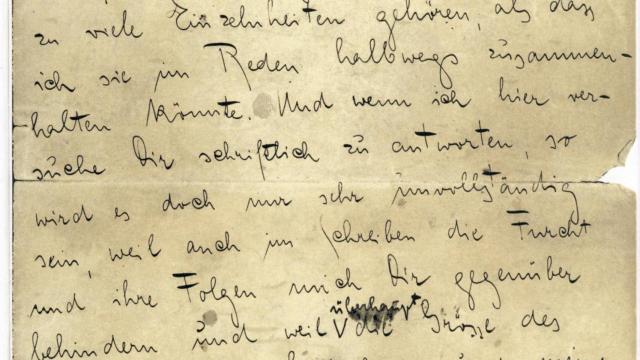 zu viele Einzelnheiten gehören, als dass
ich sie im Reden halbwegs zusammen-
halten könnte. Und wenn ich hier ver-
suche Dir schriftlich zu antworten, so
wird es doch nur sehr unvollständig
sein, weil auch im Schreiben die Furcht
und ihre Folgen mich Dir gegenüber
überhaupt
behindern und weil die Grösse des